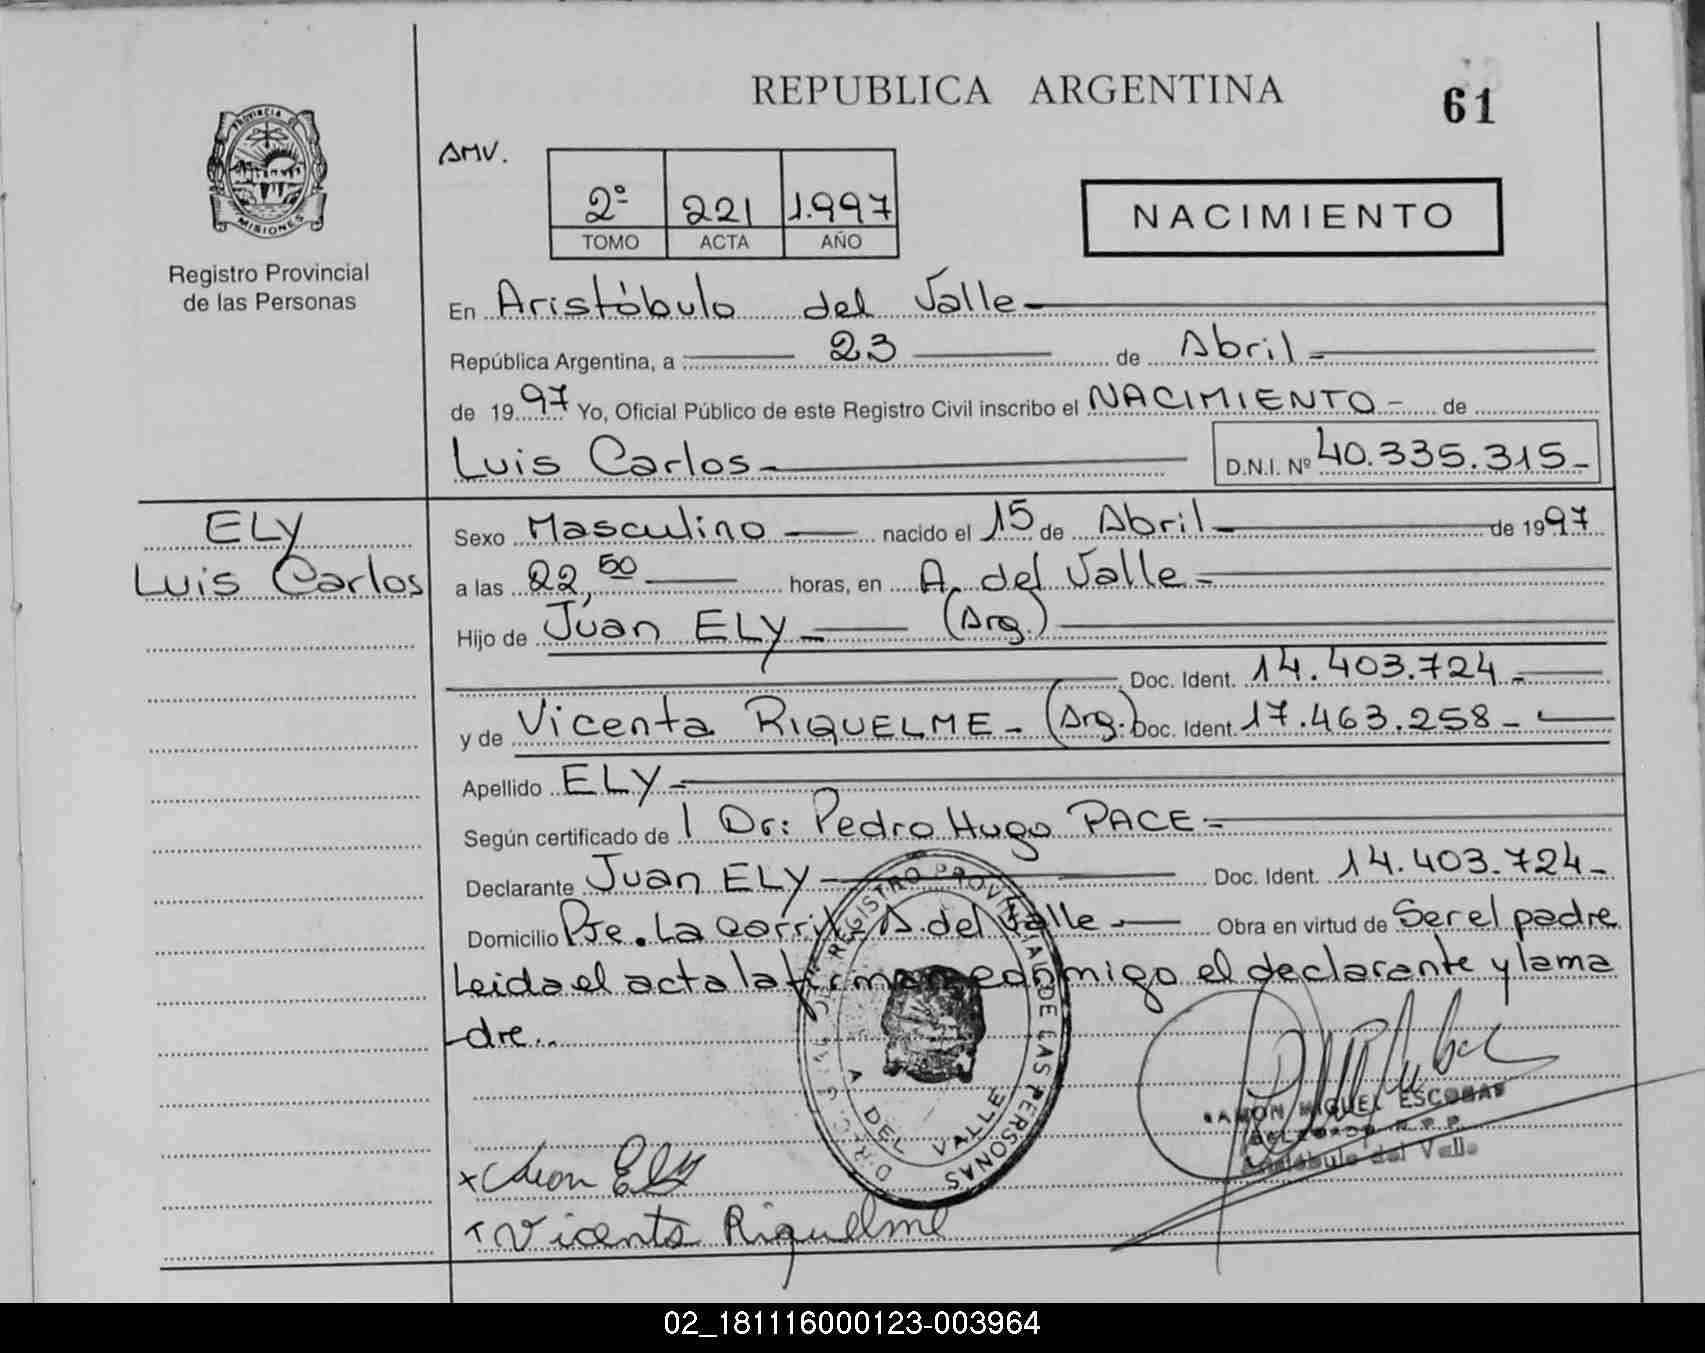 REPUBLICA ARGENTINA
61
PROVINCIA DE
MISIONES
Registro Provincial
de las Personas
AMV.
2º 221 1.997
TOMO ACTA AÑO
NACIMIENTO
En Aristóbulo del Valle
República Argentina, a 23 de Abril
de 1997 Yo, Oficial Público de este Registro Civil inscribo el NACIMIENTO - de
Luis Carlos D.N.I. Nº 40.335.315
ELY
Luis Carlos
Sexo Masculino nacido el 15 de Abril de 1997
a las 22,50 horas, en A. del Valle
Hijo de Juan ELY (Arg.)
Doc. Ident. 14.403.724
y de Vicenta RIQUELME (Arg.) Doc. Ident. 17.463.258
Apellido ELY
Según certificado de l Dr: Pedro Hugo PACE
Declarante Juan ELY Doc. Ident. 14.403.724
Domicilio Pje. La A. del Valle Obra en virtud de Ser el padre
Leida el acta la firman conmigo el declarante y la ma
dre..
REGISTRO PROVINCIAL DE LAS PERSONAS
A DEL VALLE
RAMON MIGUEL ESCOBAR
DELEGADO R.P.P.
Aristóbulo del Valle
x Juan Ely
x Vicenta Riquelme
02_181116000123-003964